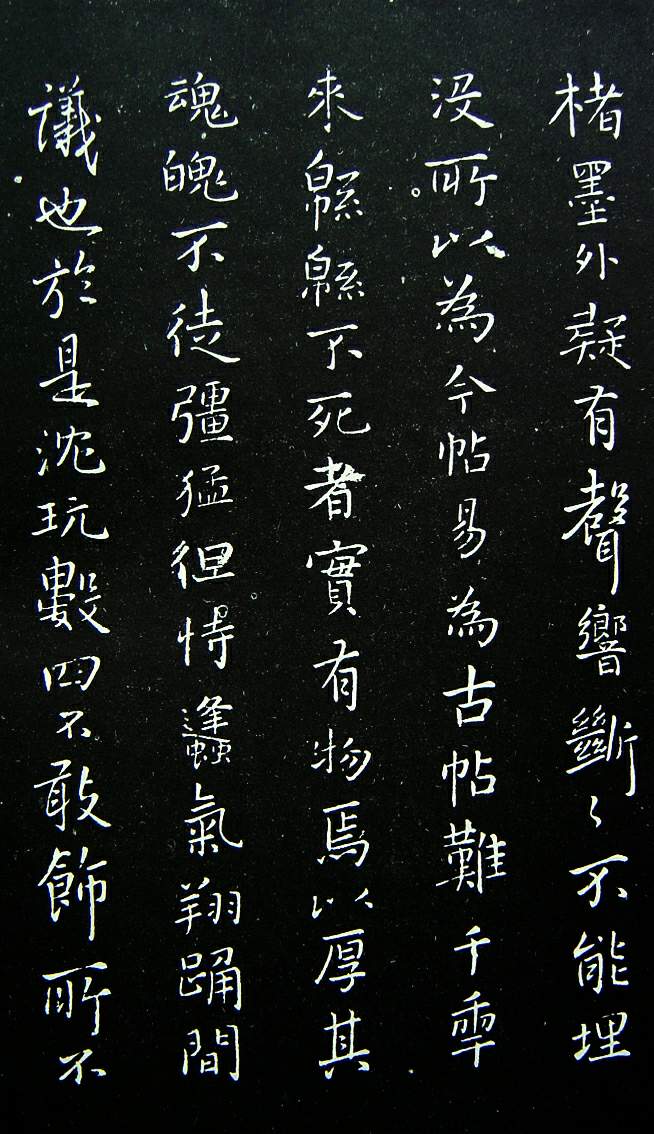 楮墨外疑有聲響斷〻不能埋
没所以為今帖易為古帖難千年
來緜緜不死者實有物焉以厚其
魂魄不徒彊猛徂恃蠭氣翔踊間
議也於是沈玩數四不敢飾所不